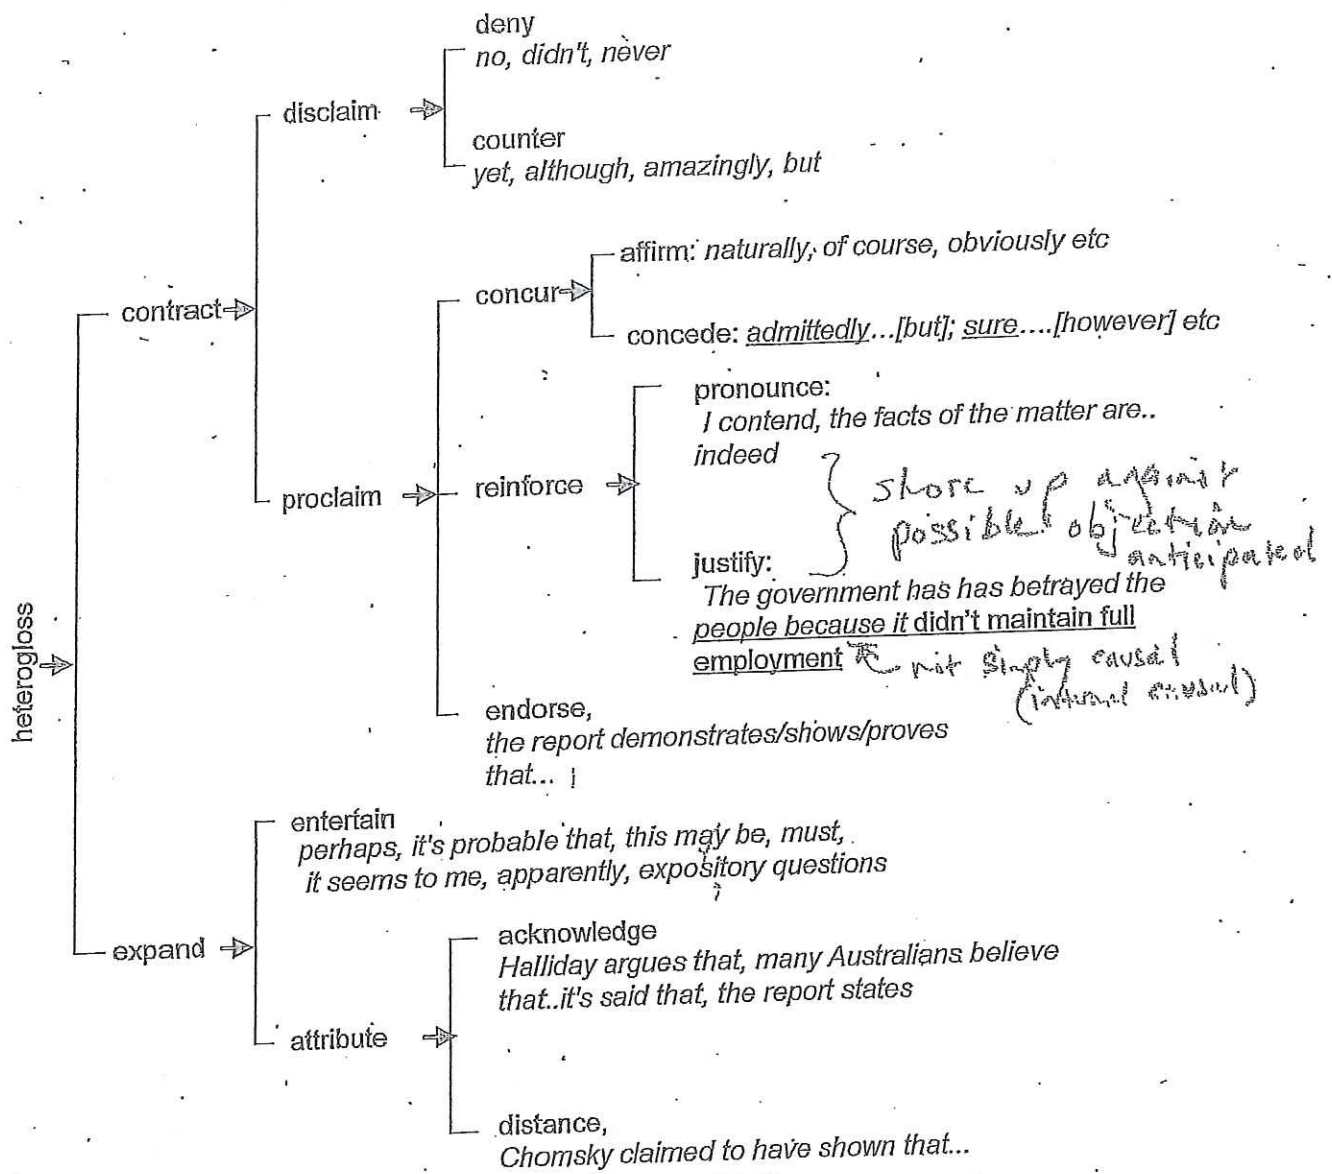 deny
no, didn't, never
disclaim
counter
yet, although, amazingly, but
affirm: naturally, of course, obviously etc
concur
contract
concede: admittedly...[but]; sure....[however] etc
pronounce:
I contend, the facts of the matter are..
indeed
reinforce
proclaim
shore up against
possible objection
anticipated
justify:
The government has has betrayed the
people because it didn't maintain full
employment
not simply causal
(internal causal)
heterogloss
endorse,
the report demonstrates/shows/proves
that...
entertain
perhaps, it's probable that, this may be, must,
it seems to me, apparently, expository questions
expand
acknowledge
Halliday argues that, many Australians believe
that..it's said that, the report states
attribute
distance,
Chomsky claimed to have shown that...